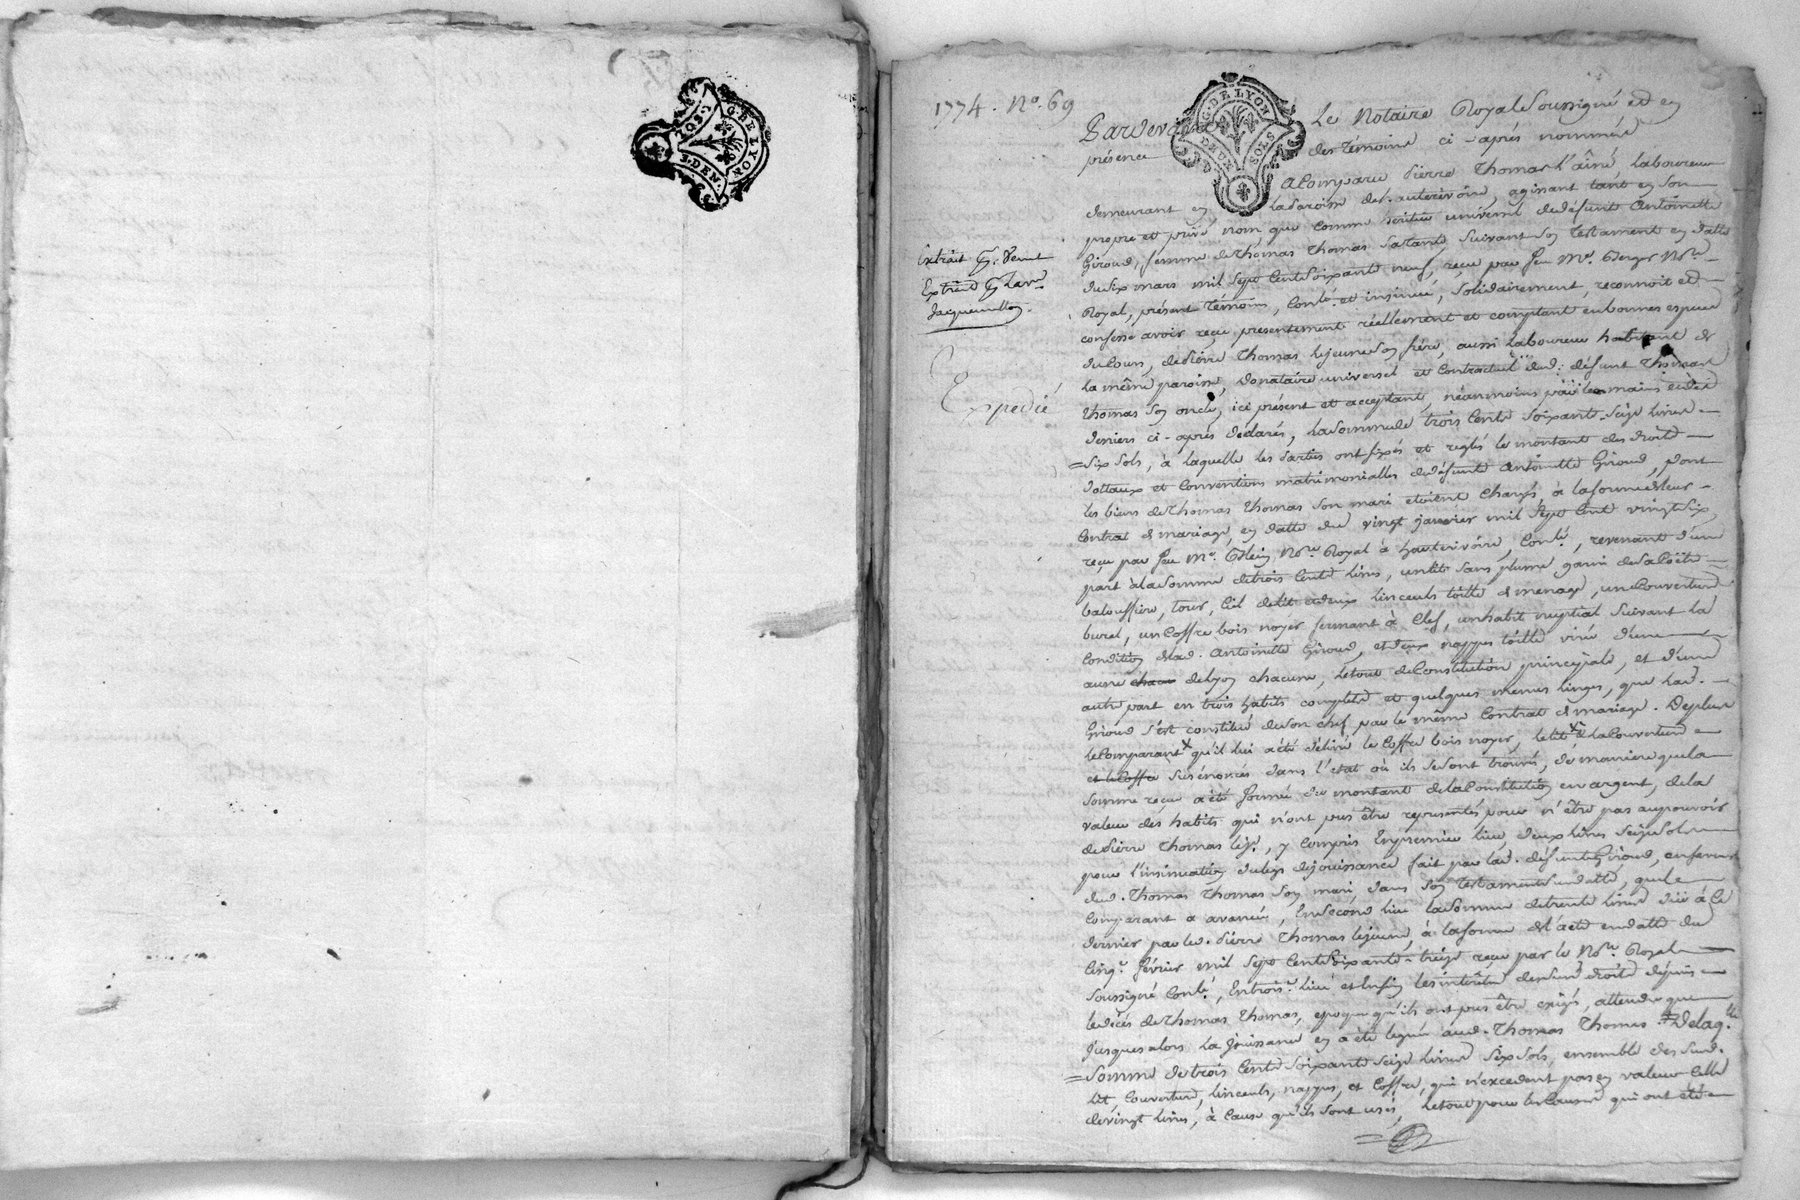 G. DE LYON
SOLS
DEN.
1774. N°. 69
G. DE LYON
DEUX SOLS
Pardevant Le Notaire Royal Soussigné et en
présence des témoins ci-après nommés
a comparu Pierre Thomas l'aîné laboureur
demeurant en la Paroisse de hauterivoire, agissant tant en son
propre et privé nom que comme héritier universel de défunte Antoinette
Giroud, femme de Thomas Thomas, suivant son testament en datte
du six mars mil sept cent soixante neuf, reçu par feu Me. Berger Nore.
Royal, présent témoins, Conlé. et insinué, solidairement, reconnoit et
confesse avoir reçu présentement réellement et comptant en bonnes especes
du Cours, de Pierre Thomas le jeune son frère, aussi laboureur habitant de
la même paroisse, donataire universel et contractuel dud. défunt Thomas
Thomas son oncle, ici présent et acceptant, néanmoins par les mains et des
deniers ci-après déclarés, la somme de trois cents soixante-seize livres
six sols, à laquelle les parties ont fixés et reglés le montant des droits
dottaux et conventions matrimonialles de défunte Antoinette Giroud, dont
les biens de Thomas Thomas son mari etoient chargés, à la forme de leur
Contrat de mariage, en datte du vingt janvier mil sept cent vingt six
reçu par feu Me. Nore. Royal à hauterivoire, Conlé., revenant d'une
part à la somme de trois cents livres, un lit sans plume garni de sa
baloussière, tour, Ciel de lit et deux linceuls toille de menage, une Couverture
buret, un Coffre bois noyer fermant à Clef, un habit nuptial suivant la
condition de lad. Antoinette Giroud, et deux nappes toille d'une
aune de Lyon chacune, le tout de Constitution principale, et d'une
autre part en trois habits complets et quelques menus linges, que lad.
Giroud s'est constitué de son chef par le même Contrat de mariage. De plus
le Comparant qu'il lui a été délivré le Coffre bois noyer, le lit & la Couverture
et le Coffre susénoncés dans l'état où ils se sont trouvés, de maniere que la
somme reçue a été formée du montant de la Constitution en argent, de la
valeur des habits qui n'ont pus être représentés pour n'être pas au pouvoir
de Pierre Thomas le je., y compris En premier lieu, deux livres seize sols
pour l'insinuation du legs de jouissance fait par lad. défunte Giroud, en faveur
dud. Thomas Thomas son mari dans son testament susdatté, que le
comparant a avancé, En second lieu la somme de trente livres düe à ce
dernier par led. Pierre Thomas le jeune, à la forme de l'acte en datte du
cinq. février mil sept cent soixante-treize reçu par le Nore. Royal
soussigné Conlé., En trois. lieu et enfin les intérêts desdits droits depuis
le décès de Thomas Thomas, epoque qu'ils ont pus être exigés, attendu que
jusques alors la jouissance en a été leguée aud. Thomas Thomas. De laq.lle
somme de trois cents soixante seize livres six sols, ensemble des sud.
lit, Couverture, linceuls, nappes, et Coffre, qui n'excedent pas en valeur celle
de vingt livres, à Cause qu'ils sont usés, le tout pour les causes qui ont été
Extrait
Expedié